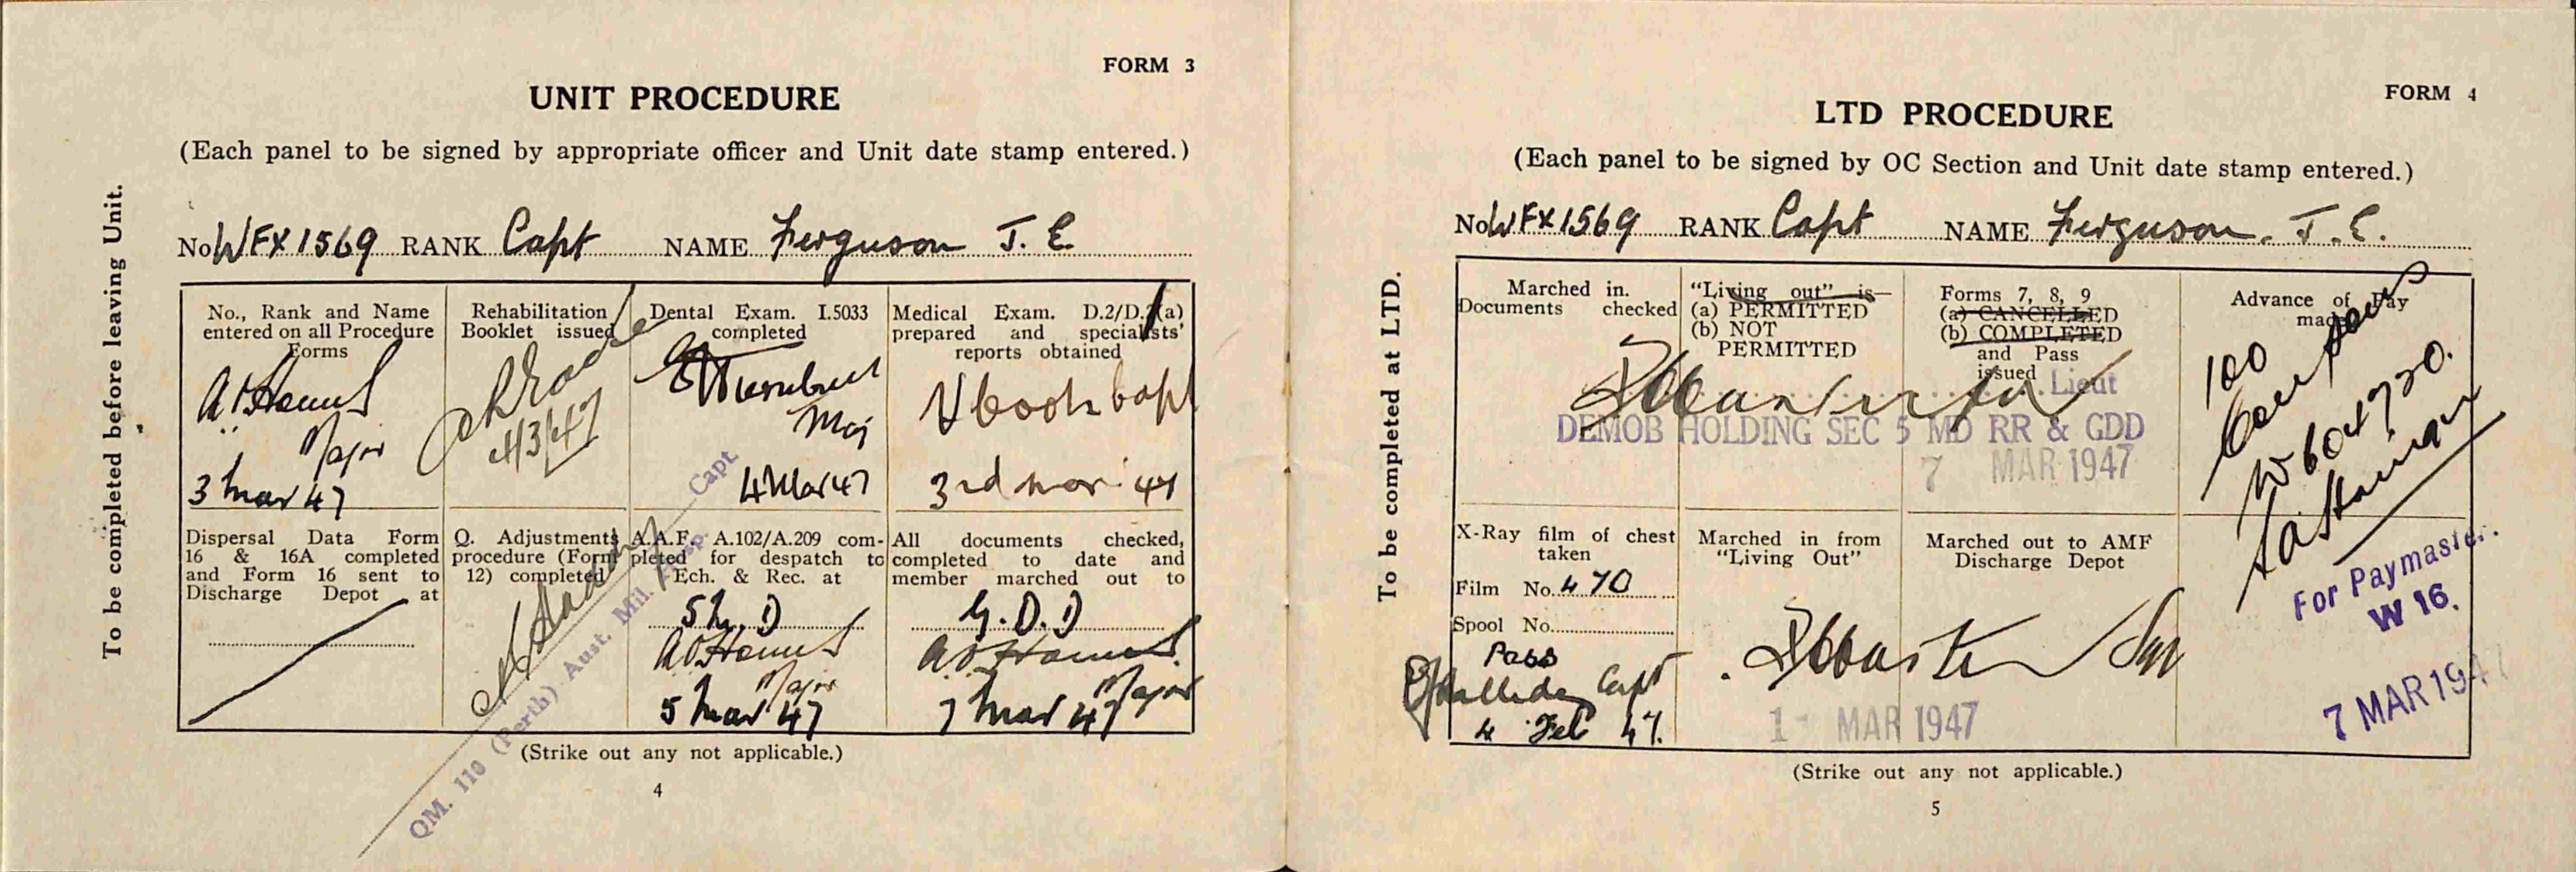 FORM 3
UNIT PROCEDURE
(Each panel to be signed by appropriate officer and Unit date stamp entered.)
To be completed before leaving Unit.
No WFX1569 RANK Capt NAME Ferguson J. E.
No., Rank and Name
entered on all Procedure
Forms
Major
3 Mar 47
Rehabilitation
Booklet issued
4/3/47
Dental Exam. I.5033
completed
Maj
4 Mar 47
Medical Exam. D.2/D.2(a)
prepared and specialists'
reports obtained
Capt
3rd Mar 47
Dispersal Data Form
16 & 16A completed
and Form 16 sent to
Discharge Depot at
Q. Adjustments
procedure (Form
12) completed
QM. 110 (Perth) Aust. Mil. Hosp. Capt.
A.A.F. A.102/A.209 com-
pleted for despatch to
Ech. & Rec. at
5 M. D
Major
5 Mar 47
All documents checked,
completed to date and
member marched out to
G. D. D
Major
7 Mar 47
(Strike out any not applicable.)
4
FORM 4
LTD PROCEDURE
(Each panel to be signed by OC Section and Unit date stamp entered.)
To be completed at LTD.
No WFX1569 RANK Capt NAME Ferguson. J. E.
Marched in.
Documents checked
"Living out" is
(a) PERMITTED
(b) NOT
PERMITTED
Forms 7, 8, 9
(a) CANCELLED
(b) COMPLETED
and Pass
issued
Lieut
DEMOB HOLDING SEC 5 MD RR & GDD
7 MAR 1947
Advance of Pay
made
100
W604720.
For Paymaster.
W 16.
7 MAR 1947
X-Ray film of chest
taken
Film No. 470
Spool No.
Pass
Capt
4 Feb 47.
Marched in from
"Living Out"
Marched out to AMF
Discharge Depot
MAR 1947
(Strike out any not applicable.)
5